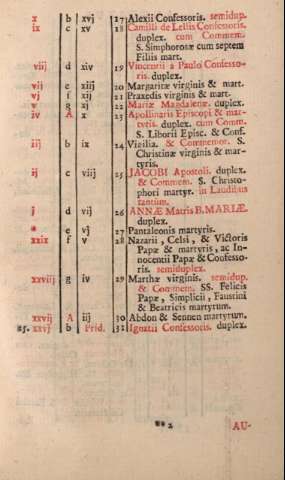 x b xvj 17 Alexii Confessoris. semidup.
ix c xv 18 Camilli de Lellis Confessoris.
duplex. cum Commem.
S. Simphorosæ cum septem
Filiis mart.
viij d xiv 19 Vincentii a Paulo Confesso-
ris. duplex.
vij e xiij 20 Margaritæ virginis & mart.
vj f xij 21 Praxedis virginis & mart.
v g xj 22 Mariæ Magdalenæ. duplex.
iv A x 23 Apollinaris Episcopi & mar-
tyris. duplex. cum Comm.
S. Liborii Episc. & Conf.
iij b ix 24 Vigilia. & Commemor. S.
Christinæ virginis & mar-
tyris.
ij c viij 25 JACOBI Apostoli. duplex.
& Commem. S. Christo-
phori martyr. in Laudibus
tantum.
j d vij 26 ANNÆ Matris B. MARIÆ.
duplex.
* e vj 27 Pantaleonis martyris.
xxix f v 28 Nazarii, Celsi, & Victoris
Papæ & martyris, ac In-
nocentii Papæ & Confesso-
ris. semiduplex.
xxviij g iv 29 Marthæ virginis. semidup.
& Commem. SS. Felicis
Papæ, Simplicii, Faustini
& Beatricis martyrum.
xxvij A iij 30 Abdon & Sennen martyrum.
25. xxvj b Prid. 31 Ignatii Confessoris. duplex.
AU-